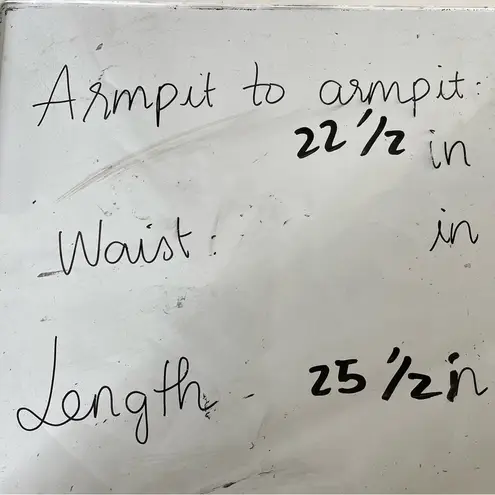 Armpit to armpit:
22 1/2 in
Waist: in
Length 25 1/2 in